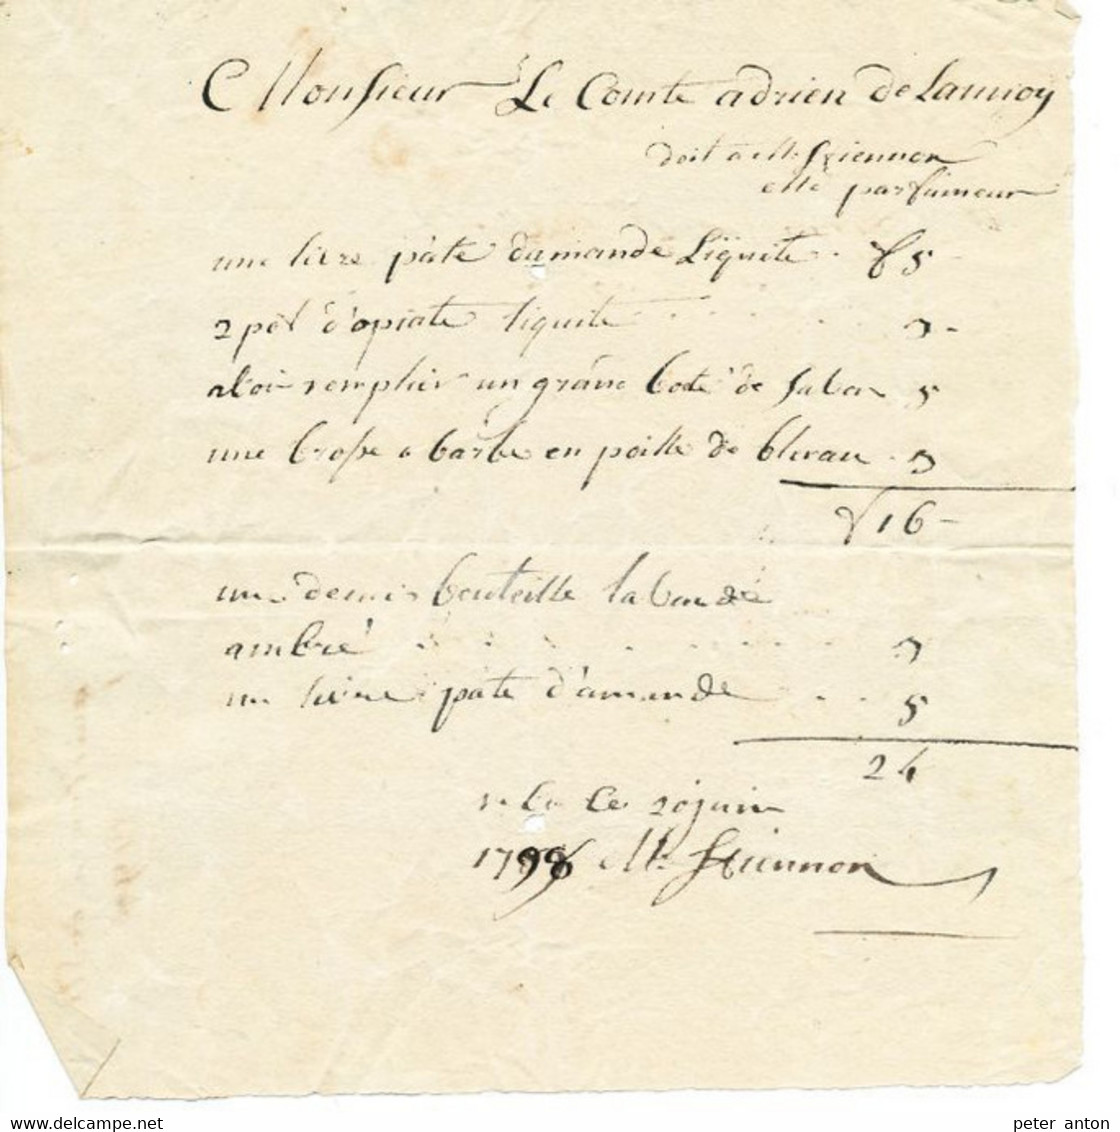 Monsieur Le Comte adrien de Lannoy
doit a M. Stiennon
Md parfumeur
une livre pâte damande Liquite f 5 -
2 pot d'opiate liquite 3 -
avoir remplier un grane bote de sabon 5
une brosse a barbe en poille de blerau 3
f 16 -
une demis bouteille labande
ambré 3
une livre pâte d'amande 5
24
ce 20 juin
1798 M. Stiennon
peter anton